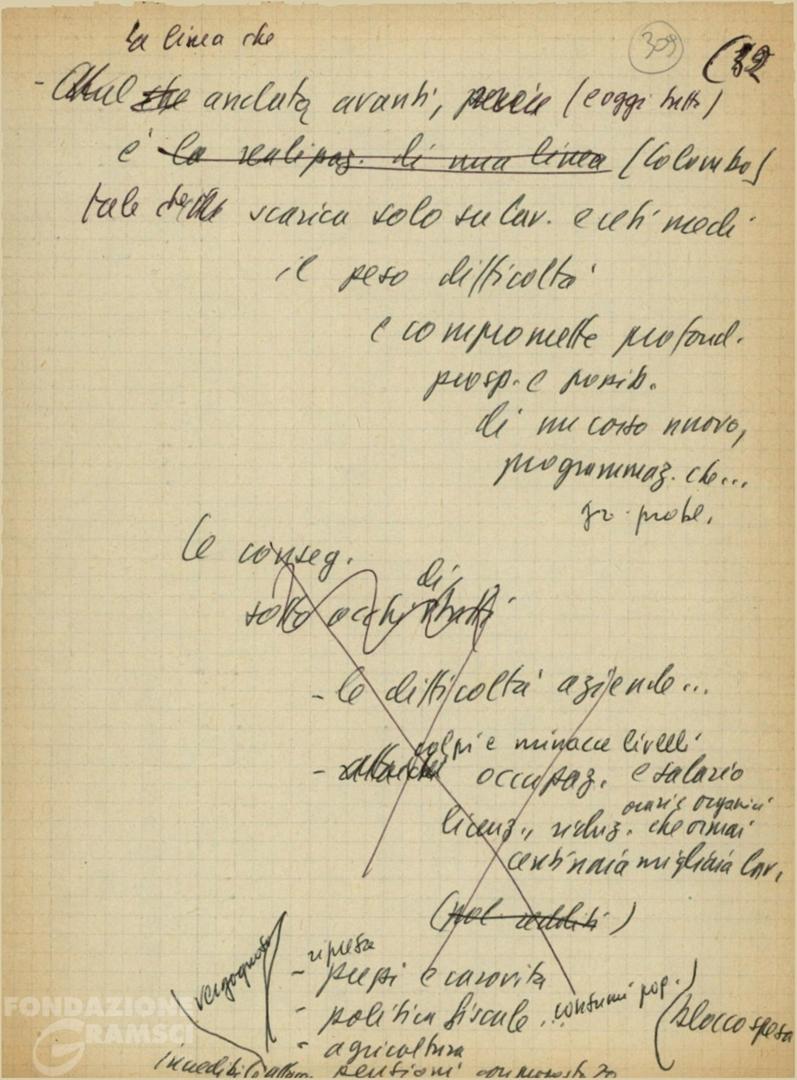 la linea che
309
(32
- andata avanti, (e oggi tutti)
è la realizzaz. di una linea (Colombo)
tale scarica solo su lav. e ceti medi
il peso difficoltà
e compromette profond.
prosp. e possib.
di un corso nuovo,
programmaz. che...
probl.
le conseg.
di
sotto occhi tutti
- le difficoltà aziende...
colpi e minacce livelli
- attacchi occupaz. e salario
orari e organici
licenz., riduz. che ormai
centinaia migliaia lav.
(pol. redditi)
vergognoso
ripresa
- prezzi e carovita
- politica fiscale.. consumi pop.
(blocco spesa
- agricoltura
pensioni
FONDAZIONE
GRAMSCI